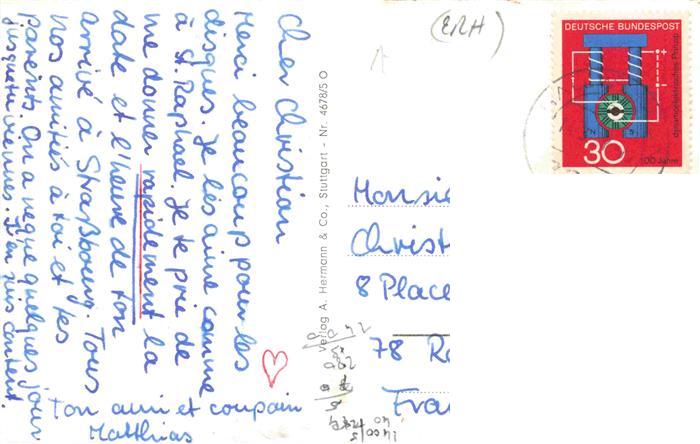 Cher Christian
Merci beaucoup pour les
disques. Je les aime comme
à St. Raphael. Je te prie de
me donner rapidement la
date et l'heure de ton
arrivé à Straßbourg. Tous
nos amitiés à toi et tes
parents. On a neque quelques jours
jusque tu viennes. J'en suis content.
Ton ami et coupain
Matthias
Verlag A. Hermann & Co., Stuttgart - Nr. 4678/5 O
(ERH)
DEUTSCHE BUNDESPOST
dynamoelektrisches Prinzip
100 Jahre
30
N S
Monsie
Christ
8 Place
78 Ro
Fran